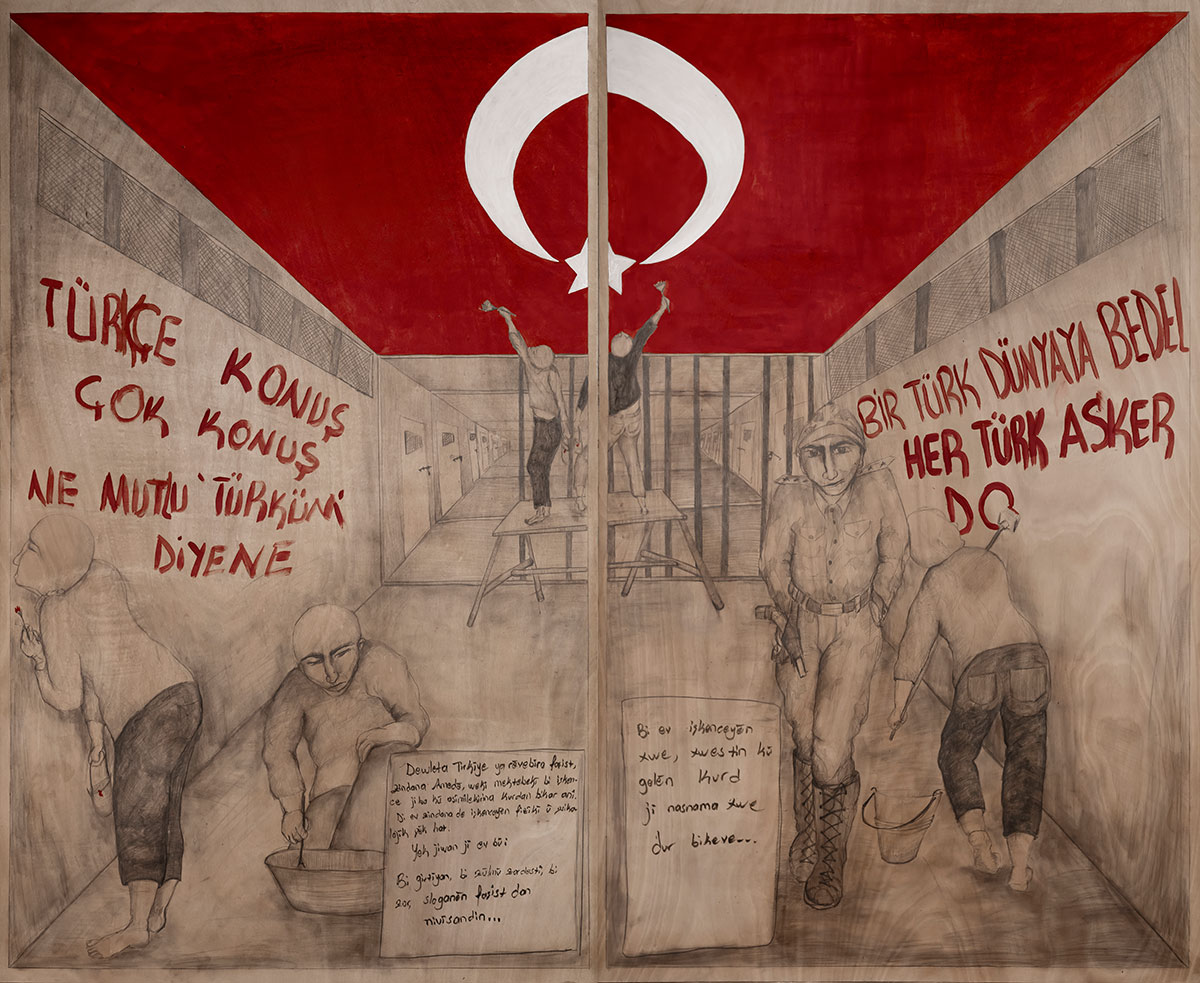 TÜRKÇE KONUŞ
ÇOK KONUŞ
NE MUTLU TÜRKÜM
DİYENE
BİR TÜRK DÜNYAYA BEDEL
HER TÜRK ASKER
DO
Dewleta Tirkiye ya rêvebira faşist,
zindana Amedê, weki mektebeki bi işken-
ce ji bo kû asimilekirina Kurdan bikar ani.
Di ev zindana de işkenceyên fiziki û psiko
lojik pêk hat.
Yek jiwan ji ev bû:
Bi girtiyan, bi zûlmû zordestî, bi
zor, sloganên faşist dan
nivîsandin...
Bi ev işkenceyên
xwe, xwestin kû
gelên Kurd
ji nasnama xwe
dur bikeve...